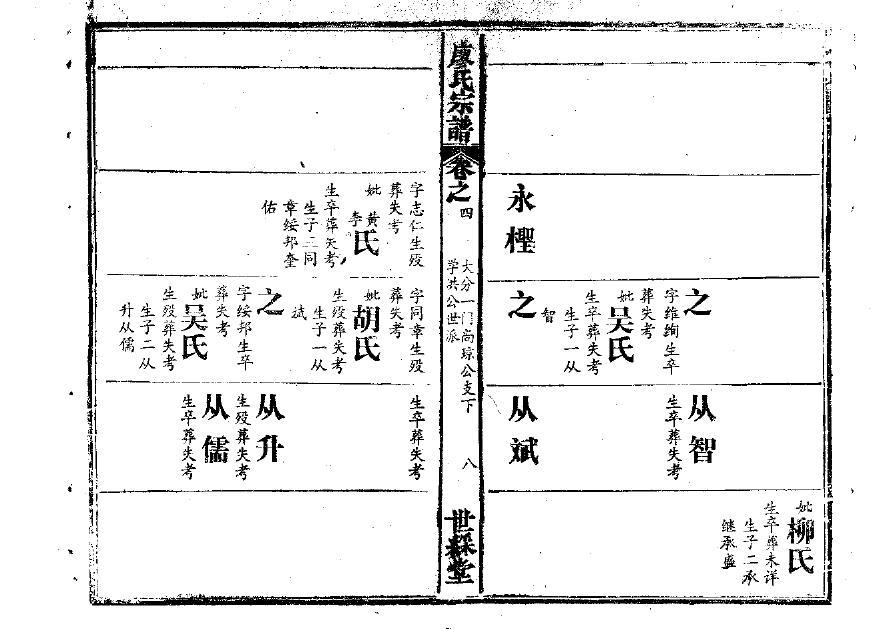 永樫
之
字维绚生卒
葬失考
妣吴氏
生卒葬失考
生子一从
智
之
从智
生卒葬失考
从斌
妣柳氏
生卒葬未详
生子二承
继承盛
廖氏宗譜
卷之四
大分一门尚琮公支下
学洪公世派
八
世綵堂
字志仁生殁
葬失考
妣黄李氏
生卒葬失考
生子二同
章绥邦奎
佑
字同章生殁
葬失考
妣胡氏
生殁葬失考
生子一从
斌
之
字绥邦生卒
葬失考
妣吴氏
生殁葬失考
生子二从
升从儒
生卒葬失考
从升
生殁葬失考
从儒
生卒葬失考